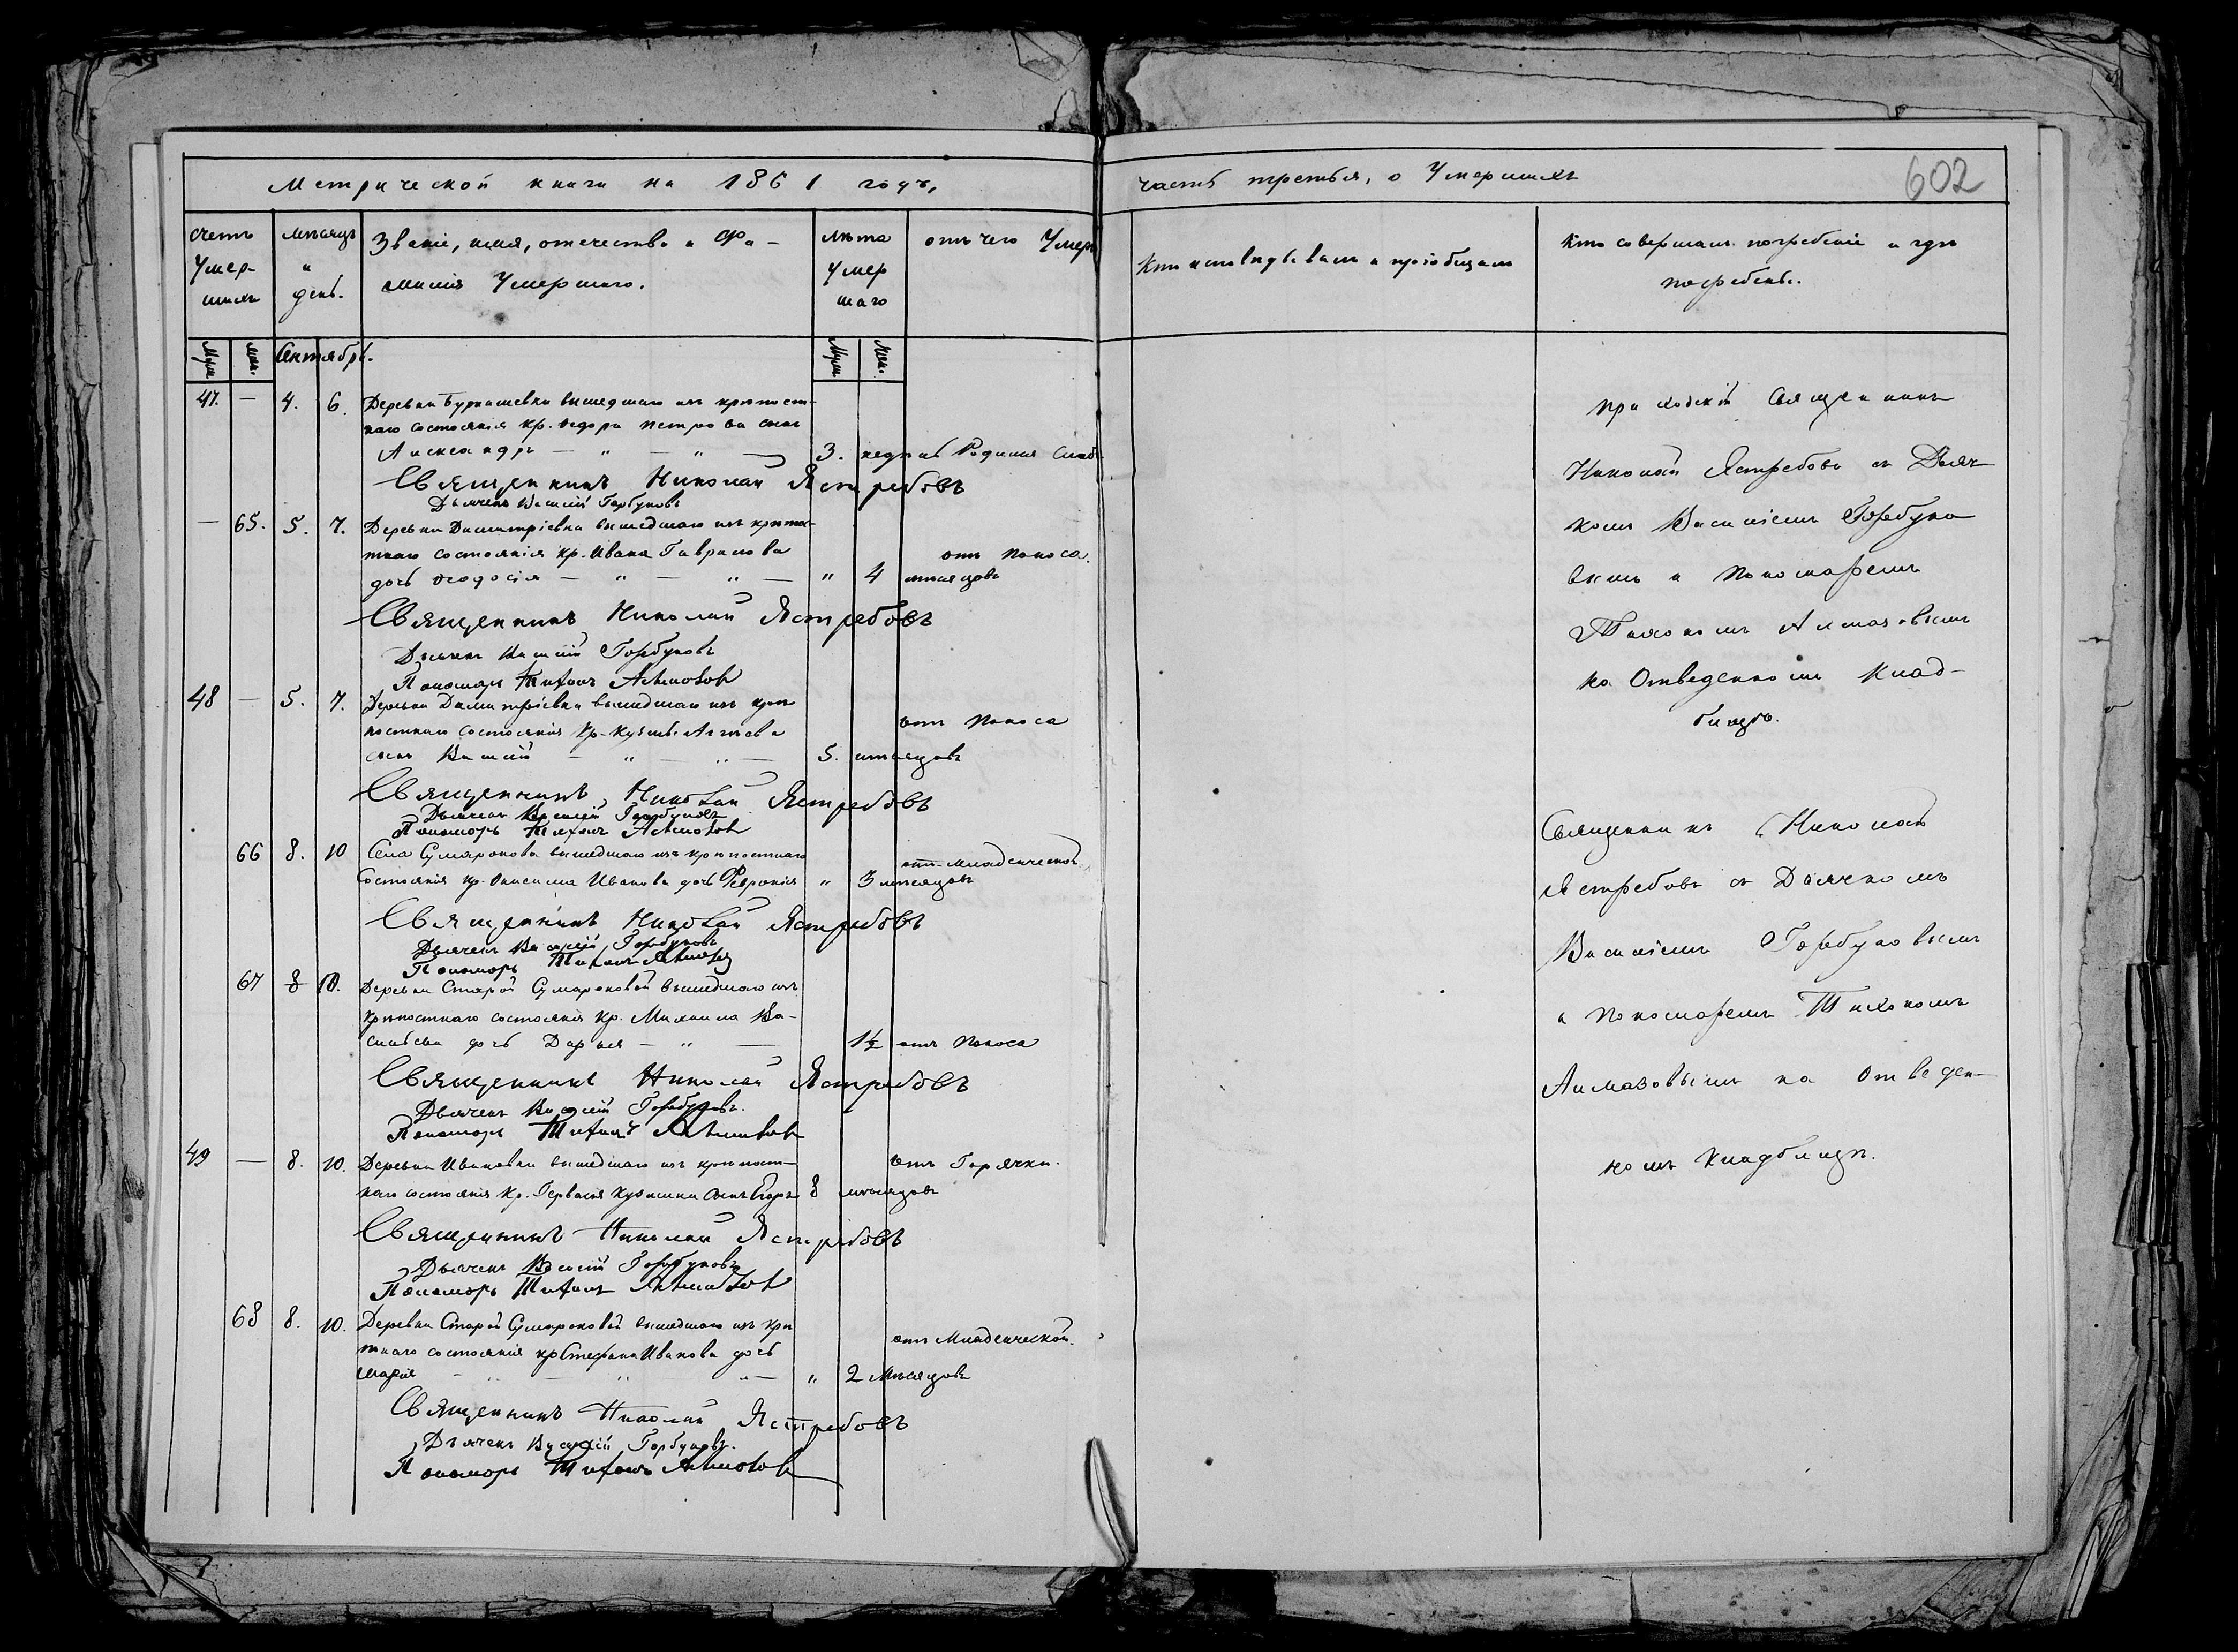 Метрической книги на 1861 годъ,
часть третья, о Умершихъ
602
Счетъ Умер-шихъ
мѣсяцъ и день.
Званіе, имя, отечество и Фа-
милія Умершаго.
Лѣта Умер шаго
отъ чего Умеръ
Кто исповѣдывалъ и пріобщалъ
Кто совершалъ погребеніе и гдѣ
погребены.
Муж. жен. Октябрь. Муж. Жен.
47. — 4. 6. Деревни Бурнашевки вышедшаго изъ крѣпост-
наго состоянія кр. Ѳедора Петрова сынъ
Александръ — " — " — 3. недѣль Родимца Слаб
Священникъ Николай Ястребовъ
Дьячекъ Василій Горбуновъ
— 65. 5. 7. Деревни Димитріевки вышедшаго изъ крѣпос-
тнаго состоянія кр. Ивана Гаврилова
отъ Поноса.
дочь Ѳеодосія — " — " — " 4 мѣсяцовъ
Священникъ Николай Ястребовъ
Дьячекъ Василій Горбуновъ
Пономарь Тихонъ Алмазовъ
48 — 5. 7. Деревни Димитріевки вышедшаго изъ крѣ
постнаго состоянія Кр. Кузьмы
отъ Поноса
сынъ Василій — " — " — 5. мѣсяцовъ
Священникъ Николай Ястребовъ
Дьячекъ Василій Горбуновъ
Пономарь Тихонъ Алмазовъ
66 8. 10 Села Сумарокова вышедшаго изъ крѣпостнаго
отъ младенческой
Состоянія кр. Онисима Иванова дочь Февронія " 3 мѣсяцовъ
Священникъ Николай Ястребовъ
Дьячекъ Василій Горбуновъ
Пономарь Тихонъ Алмазовъ
67 8 10. Деревни Старой Сумароковой вышедшаго изъ
крѣпостнаго состоянія кр. Михаила Ва-
сильева дочь Дарья — " — 1½ отъ Поноса
Священникъ Николай Ястребовъ
Дьячекъ Василій Горбуновъ.
Пономарь Тихонъ Алмазовъ
49 — 8. 10. Деревни Ивановки вышедшаго изъ крѣпост-
отъ Горячки.
наго состоянія Кр. Гервасія Кузьмина сынъ Егоръ 8 мѣсяцовъ
Священникъ Николай Ястребовъ
Дьячекъ Василій Горбуновъ
Пономарь Тихонъ Алмазовъ
68 8. 10. Деревни Старой Сумароковой вышедшаго изъ крѣ
отъ Младенческой.
тнаго состоянія кр Стефана Иванова дочь
Марія — " — " — " — " 2 Мѣсяцовъ
Священникъ Николай Ястребовъ
Дьячекъ Василій Горбуновъ.
Пономарь Тихонъ Алмазовъ
приходскій Священникъ
Николай Ястребовъ съ Дьяч-
комъ Василіемъ Горбуно
вымъ и Пономаремъ
Тихономъ Алмазовымъ
на Отведенномъ Клад-
бищѣ.
Священникъ Николай
Ястребовъ съ Дьячкомъ
Василіемъ Горбуновымъ
и Пономаремъ Тихономъ
Алмазовымъ на Отведен-
номъ Кладбищѣ.